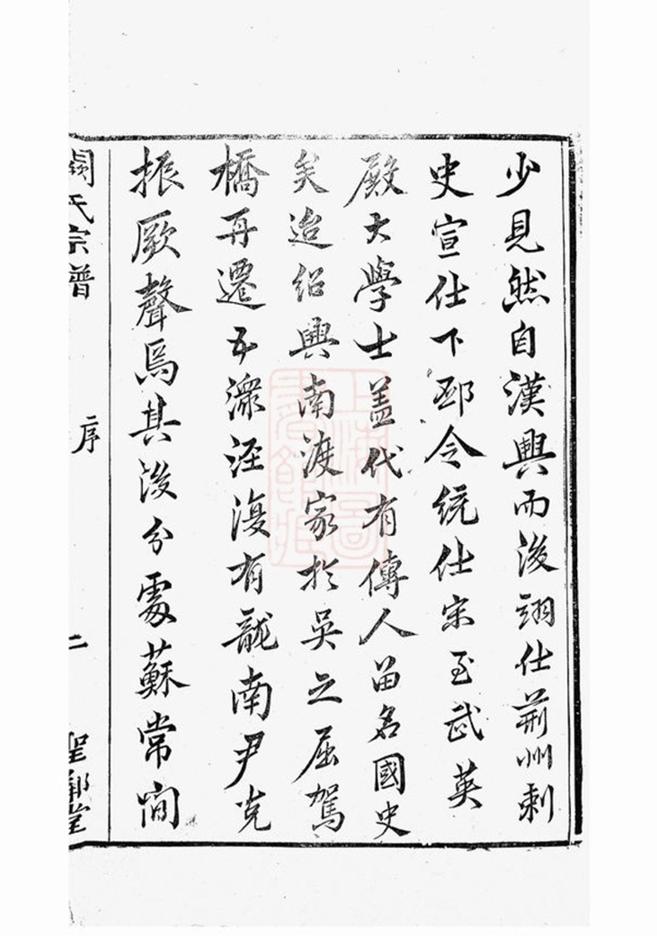 少見然自漢興而後翊仕荊州刺
史宣仕下邳令統仕宋至武英
殿大學士蓋代有傳人留名國史
矣迨紹興南渡家於吳之屈駕
橋再遷五潨涇復有龍南尹克
振厥聲焉其後分處蘇常間
闕氏宗譜
序
二
聖鄉堂
上海圖書館藏